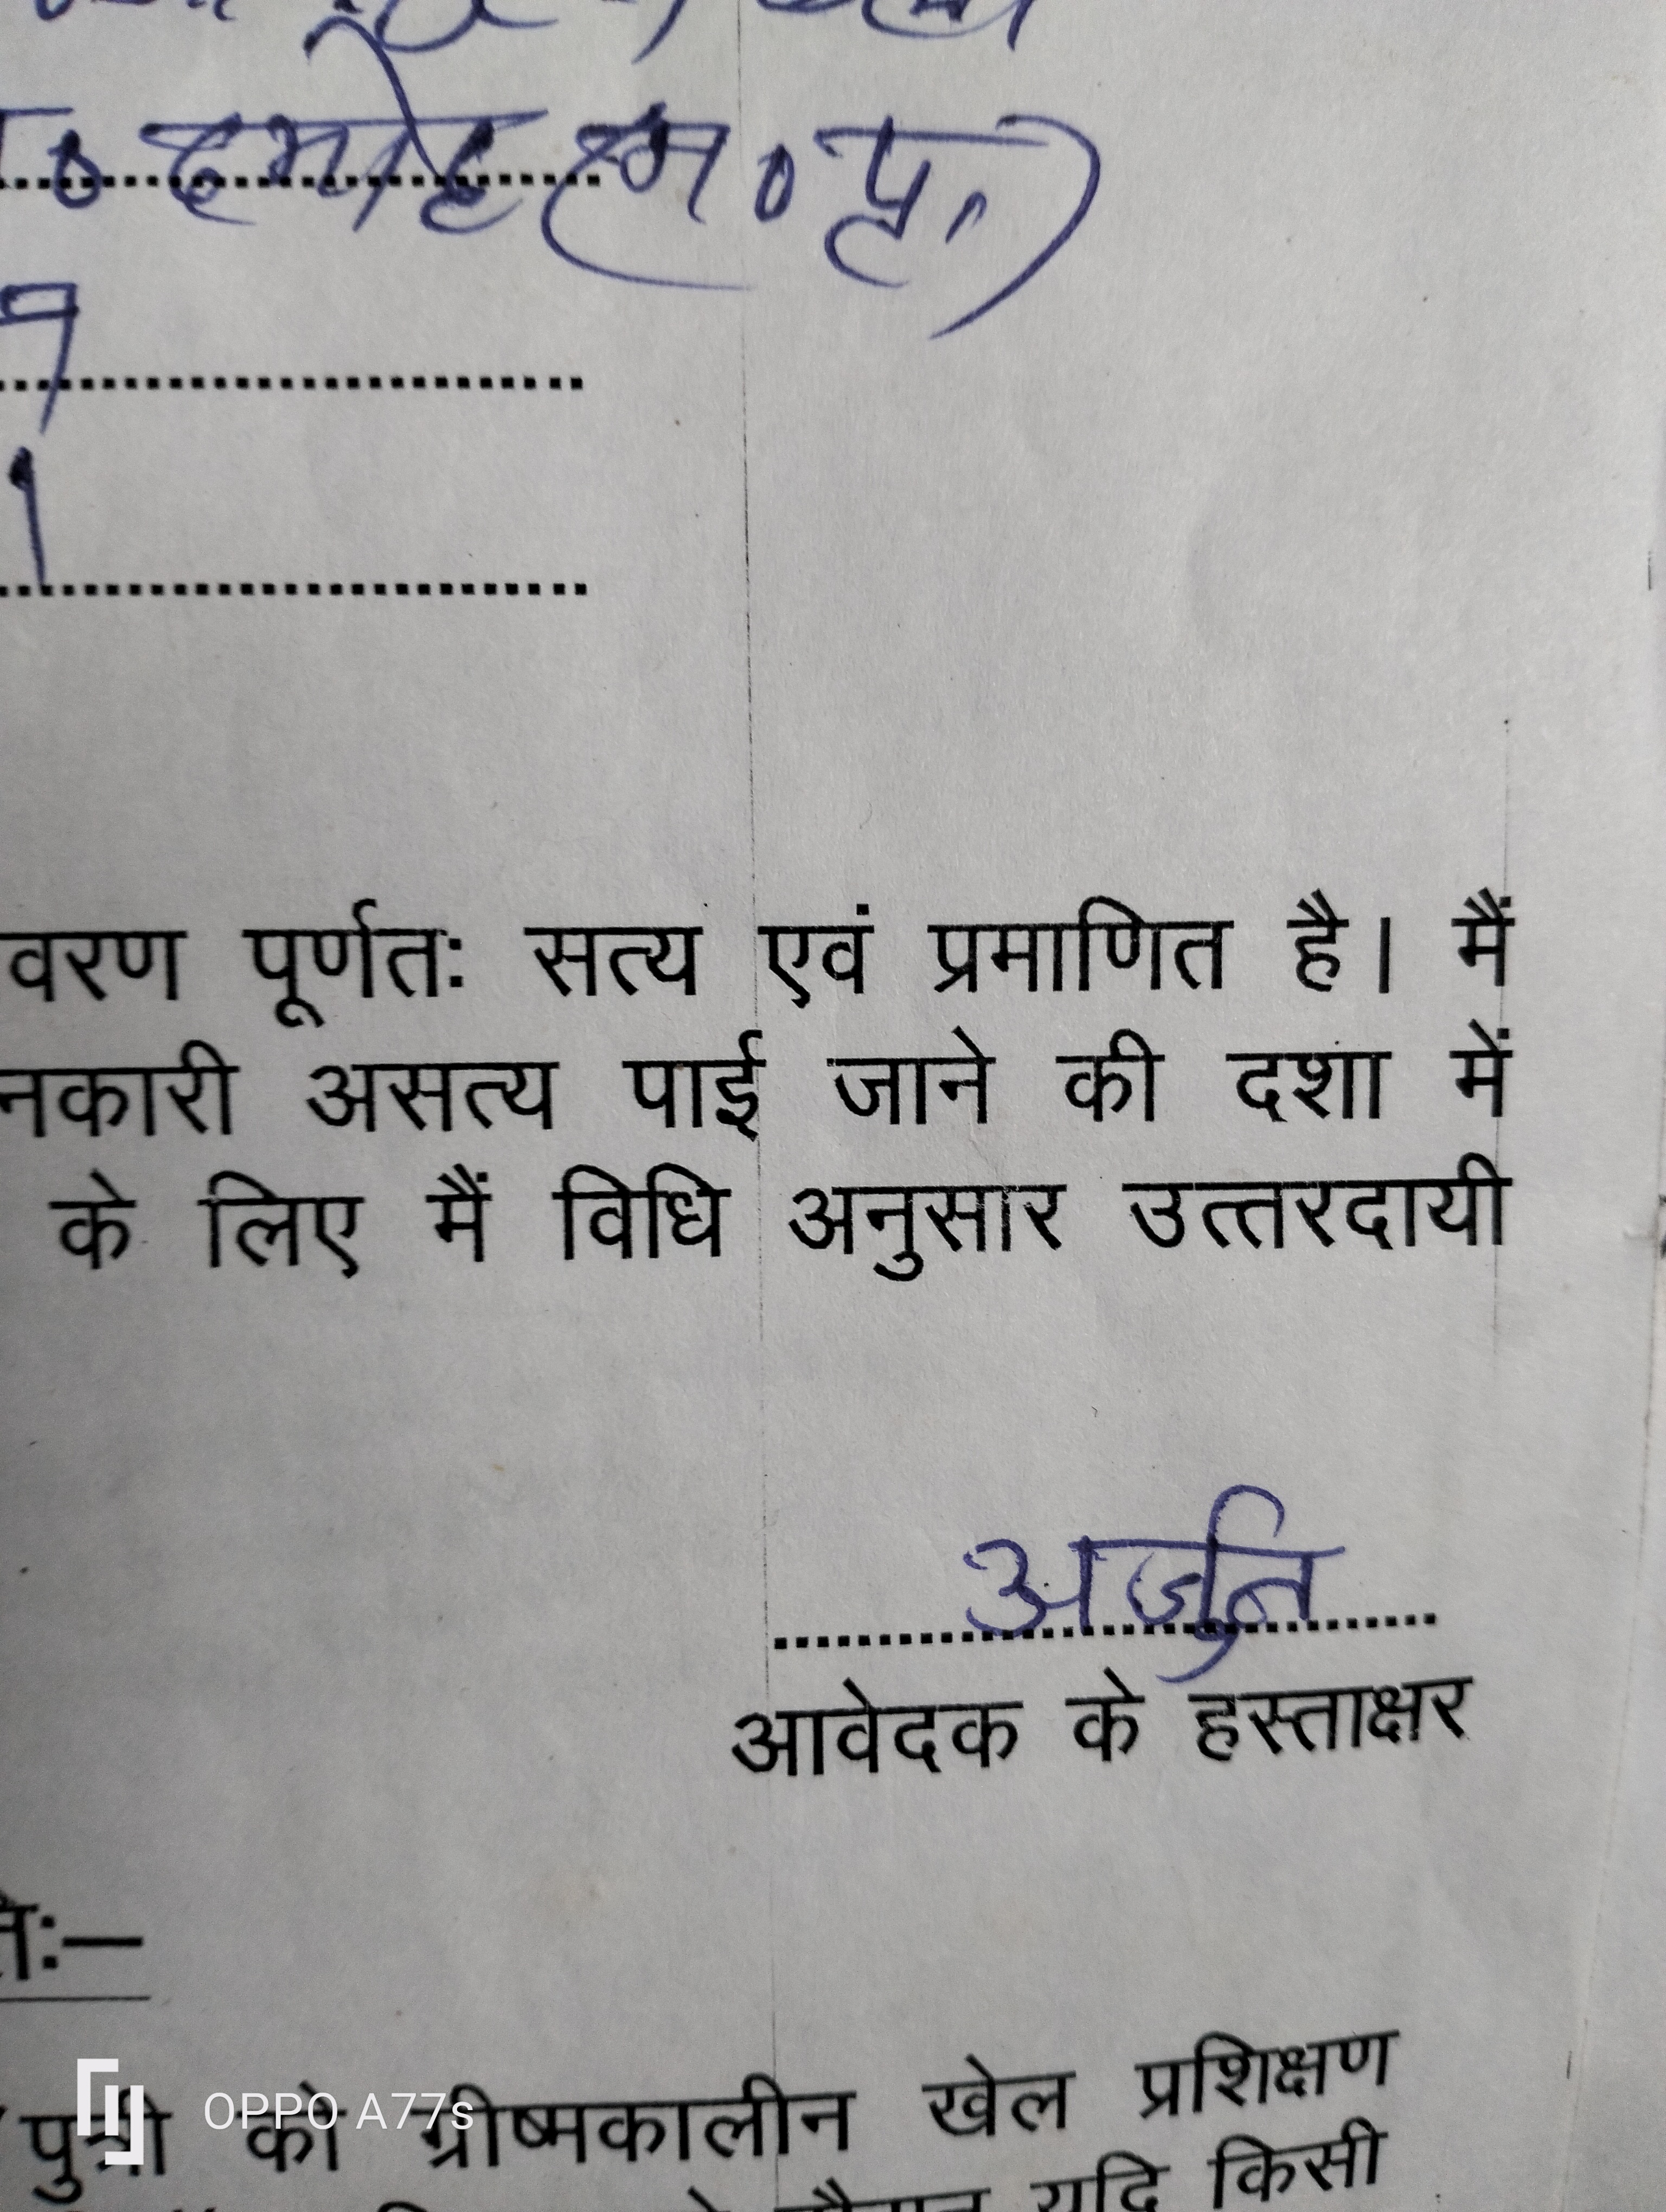 दमोह (म०प्र.)
9
1
वरण पूर्णतः सत्य एवं प्रमाणित है। मैं
नकारी असत्य पाई जाने की दशा में
के लिए मैं विधि अनुसार उत्तरदायी
अर्जुन
आवेदक के हस्ताक्षर
पुत्री को ग्रीष्मकालीन खेल प्रशिक्षण
यदि किसी
OPPO A77s